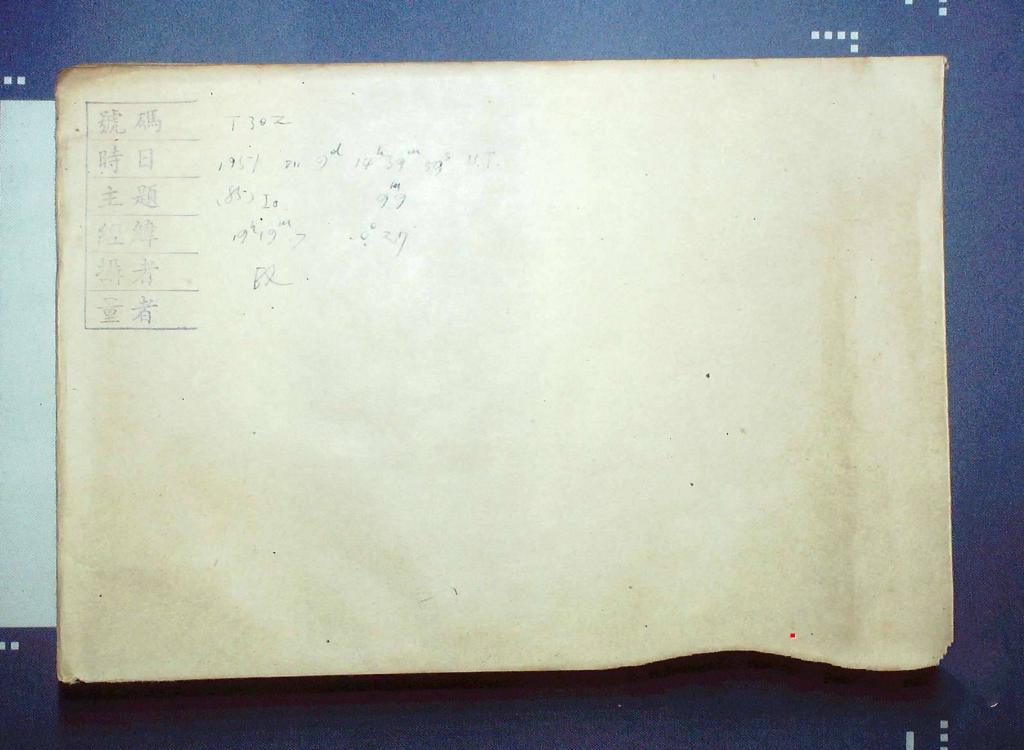 號碼 T302
時日 1951 9d 14h 39m 59s U.T.
主題 (85) Io 9m9
經緯 19h19m.7 -8°27
攝者 段
量者